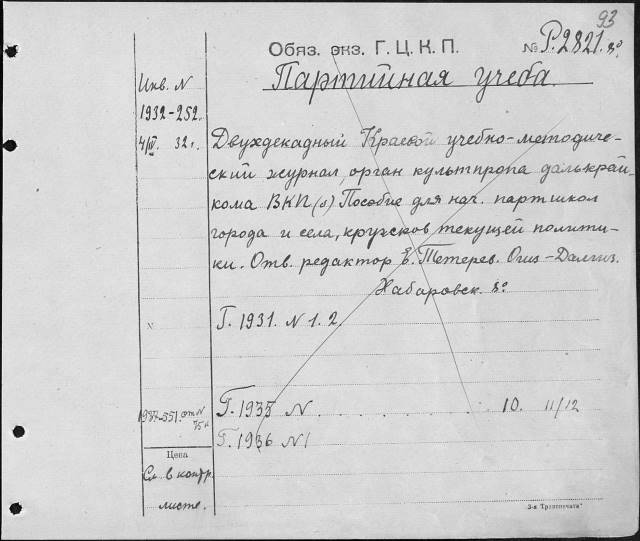 93
Обяз. экз. Г. Ц. К. П.
№ Р.2821. 8°
Партийная учеба.
Инв. N
1932-252.
4/IV. 32 г.
Двухдекадный Краевой учебно-методиче-
ский журнал, орган культпропа далькрай-
кома ВКП(б) Пособие для нач. партшкол
города и села, кружков текущей полити-
ки. Отв. редактор В. Тетерев. Огиз-Далгиз.
Хабаровск. 8°
N
Г. 1931. N 1. 2.
от N
Г. 1935 N . . . . . . . . . . 10. 11/12
Г. 1936 N1
Цена
См. в контр.
листе.
3-я "Транспечати"